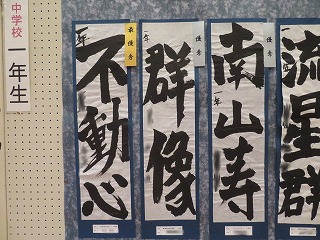 中学校
一年生
最優秀
一年
不動心
優秀
一年
群像
優秀
南山寿
一年
流星群